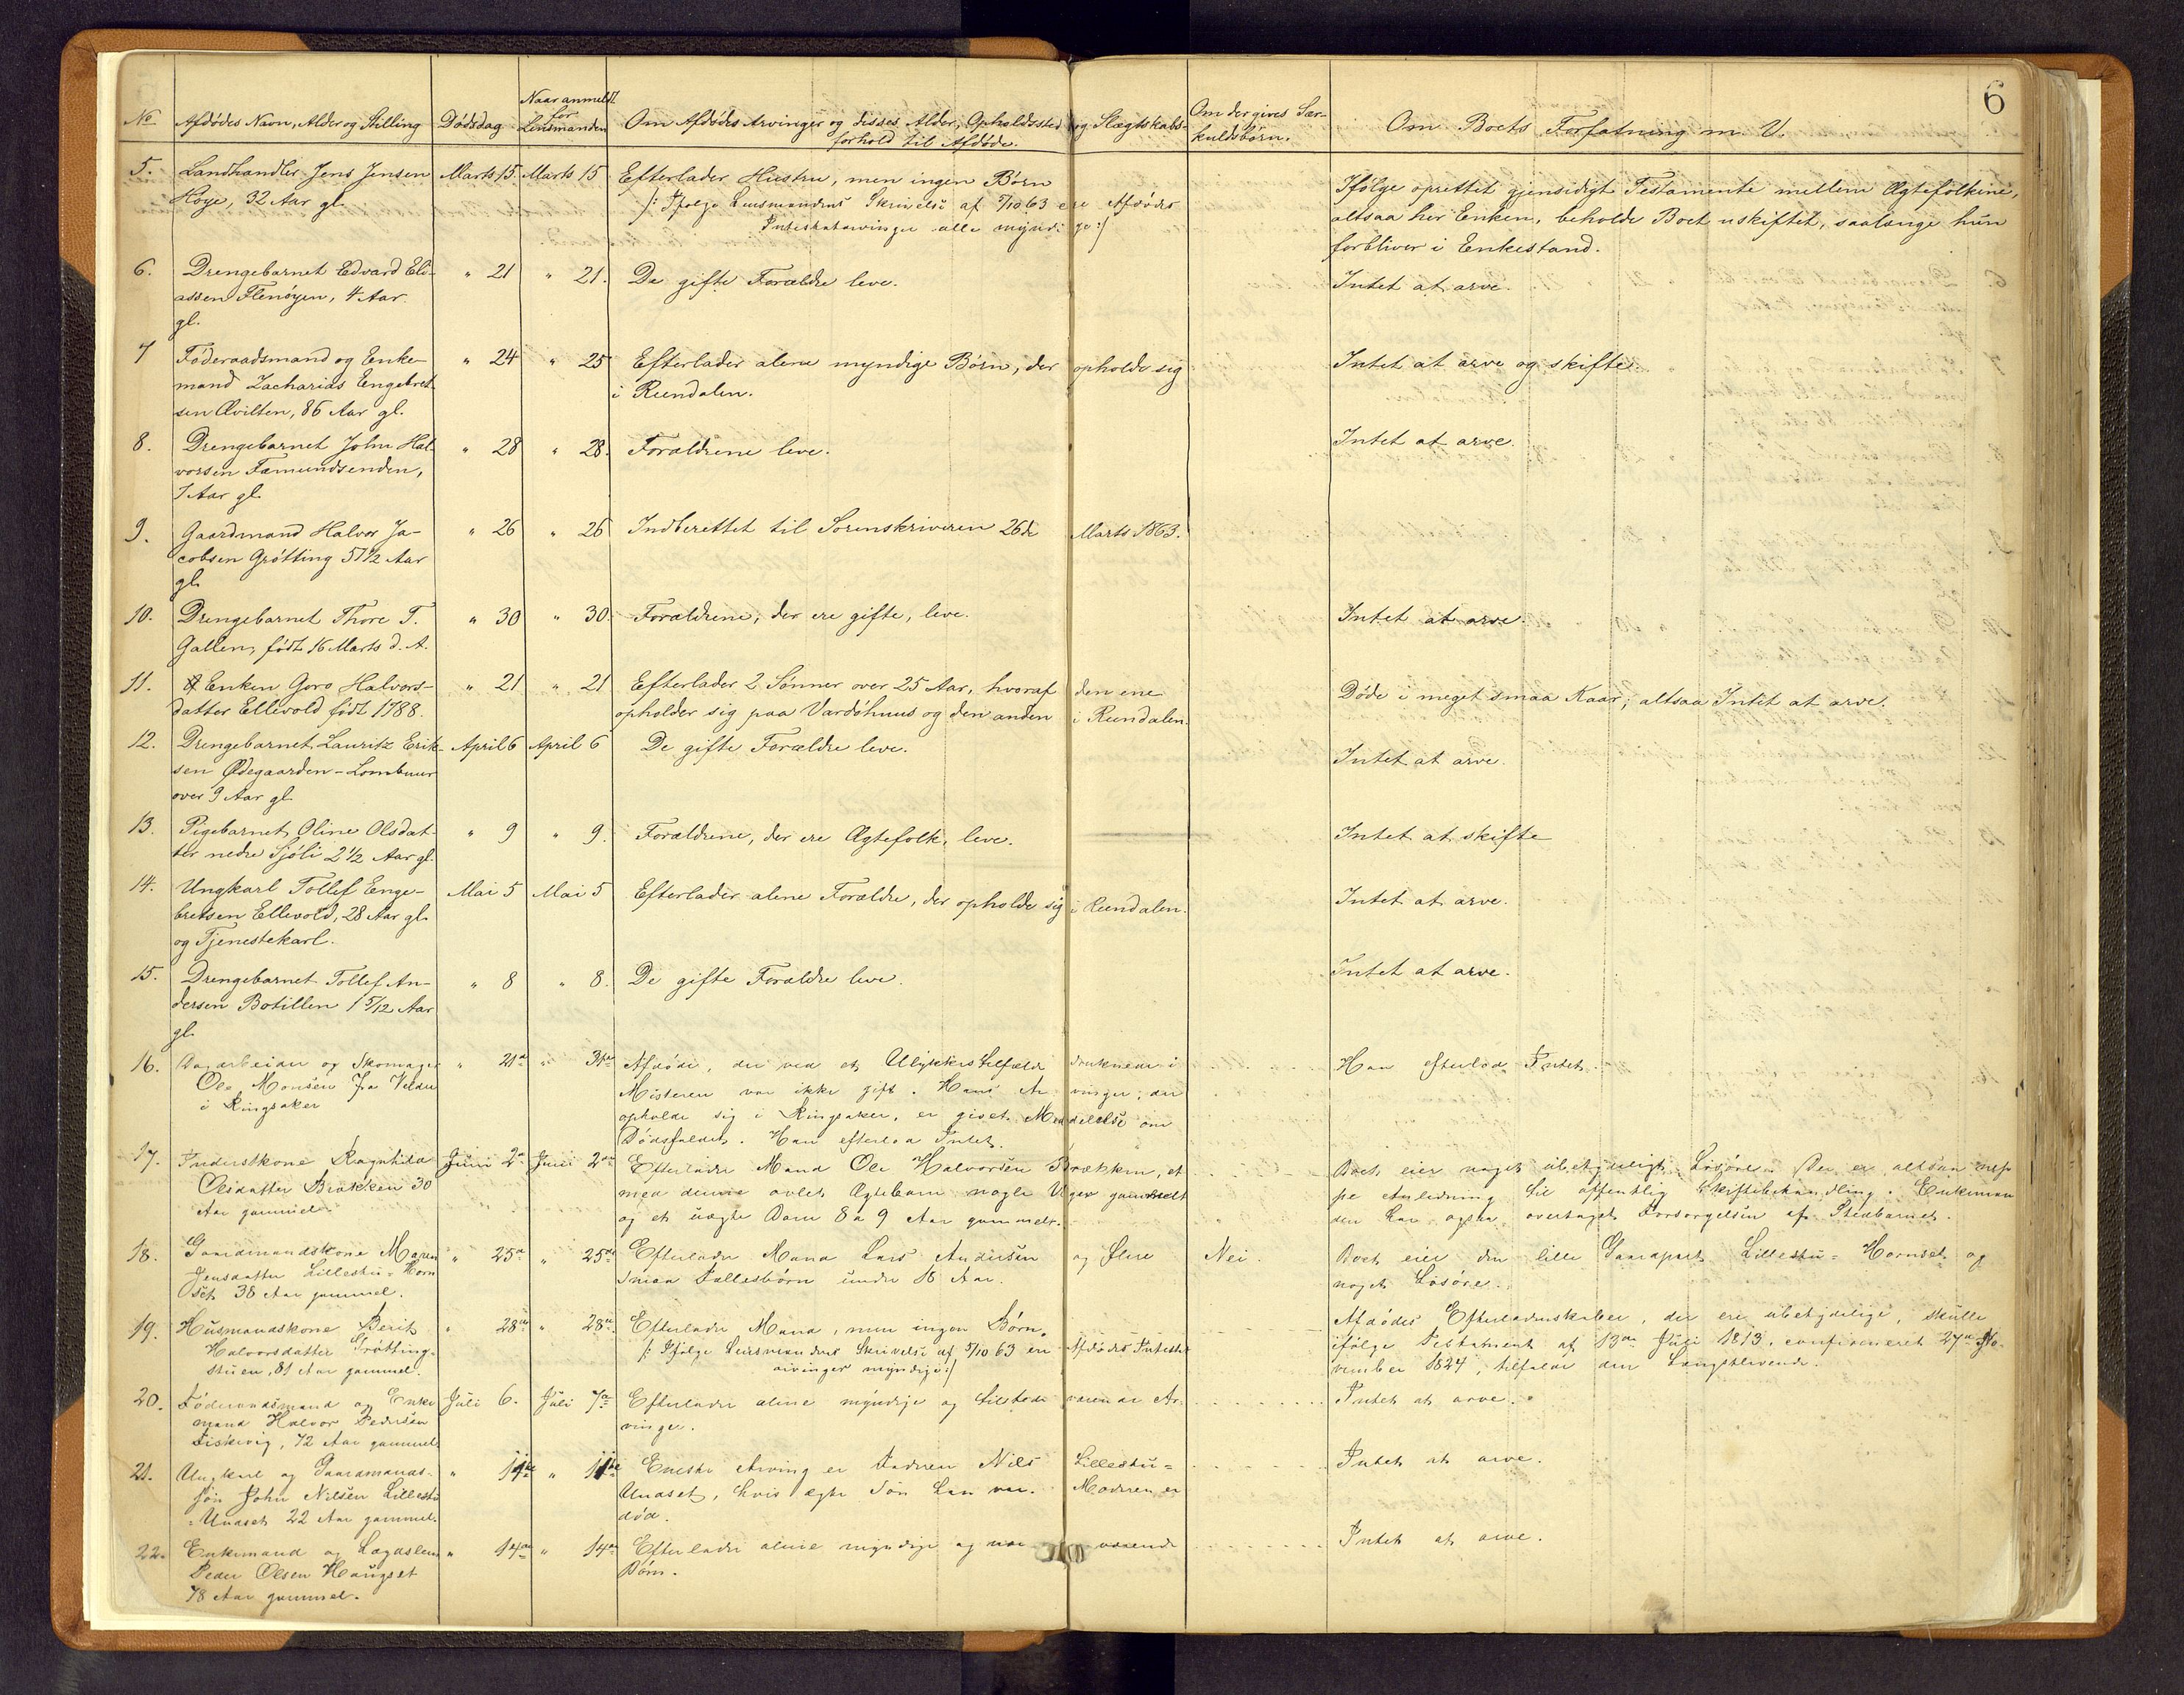 6
No Afdödes Navn, Alder og Stilling Dödsdag Naar anmeldt for Lensmanden Om Afdödes Arvinger og disses Alder, Opholdssted og Slægtskabs-
forhold til Afdöde. Om der gives Sær-
kuldsbörn. Om Boets Forfatning m. V.
5. Landhandler Jens Jensen Marts 15. Marts 15 Efterlader Hustru, men ingen Börn Ifölge oprettet gjensidigt Testamente mellem Ægtefolkene,
Hoye, 32 Aar gl. /: Ifölge Lensmandens Skrivelse af 5/10 63 ere Afdödes altsaa her Enken, beholde Boet uskiftet, saalænge hun
Intestatarvinger alle myndige :/ forbliver i Enkestand.
6. Drengebarnet Edvard Eli- " 21 " 21. De gifte Forældre leve. Intet at arve.
assen Flenöyen, 4 Aar
gl.
7 Föderaadsmand og Enke- " 24 " 25 Efterlader alene myndige Börn, der opholde sig Intet at arve og skifte.
mand Zacharias Engebret- i Rendalen.
sen Qvilten, 86 Aar gl.
8. Drengebarnet John Hal- " 28 " 28. Forældrene leve. Intet at arve.
vorsen Fæmundsenden,
7 Aar gl.
9. Gaardmand Halvor Ja- " 26 " 26 Indberettet til Sorenskriveren 26de Marts 1863.
cobsen Grötting 57 1/2 Aar
gl.
10. Drengebarnet Thore T. " 30 " 30. Forældrene, der ere gifte, leve. Intet at arve.
Gallen, födt 16 Marts d. A.
11. Enken Goro Halvors- " 21 " 21 Efterlader 2 Sönner over 25 Aar, hvoraf den ene Döde i meget smaa Kaar; altsaa Intet at arve.
datter Ellevold födt 1788. opholder sig paa Vardöhuus og den anden i Rendalen.
12. Drengebarnet Lauritz Erik- April 6 April 6 De gifte Forældre leve. Intet at arve.
sen Ødegaarden-Lombnæs
over 9 Aar gl.
13. Pigebarnet Oline Olsdat- " 9 " 9. Forældrene, der ere Ægtefolk, leve. Intet at skifte
ter nedre Sjöli 2 1/2 Aar gl.
14. Ungkarl Tollef Enge- Mai 5 Mai 5 Efterlader alene Forældre, der opholde sig i Rendalen. Intet at arve.
bretsen Ellevold, 28 Aar gl.
og Tjenestekarl.
15. Drengebarnet Tollef An- " 8 " 8. De gifte Forældre leve. Intet at arve.
dersen Botillen 1 5/12 Aar
gl.
16. Dagarbeider og Skomager " 21de " 31te Afdöde, der ved et Ulykkestilfælde druknede i Han efterlod Intet.
Ole Monsen fra Veldre Misteren var ikke gift. Hans Arvinger, der
i Ringsaker opholde sig i Ringsaker, er givet Meddelelse om
Dödsfaldet. Han efterlod Intet.
17. Inderstkone Ragnhild Juni 2den Juni 2den Efterlader Mand Ole Halvorsen Brækken, et Boet eier noget ubetydeligt Lösöre. Der er altsaa nep-
Olsdatter Brækken 30 med denne avlet Ægtebarn nogle Uger gammelt pe Anledning til offentlig Skiftebehandling. Enkeman-
Aar gammel. og et uægte Barn 8 a 9 Aar gammelt. den har ogsaa overtaget Forsörgelsen af Stedbarnet.
18. Gaardmandskone Maren " 25de " 25de Efterlader Mand Lars Andersen og flere Nei. Boet eier den lille Gaardpart Lillestu-Hornset og
Jensdatter Lillestu-Horn- smaa Fællesbörn under 18 Aar. noget Lösöre.
set 38 Aar gammel.
19. Husmandskone Berit " 28de " 28de Efterlader Mand, men ingen Börn. Afdödes Efterladenskaber, der ere ubetydelige, skulle
Halvorsdatter Grötting- /: Ifölge Lensmandens Skrivelse af 5/10 63 ere Afdödes Intestat- ifölge Testament af 13de Juli 1813, confirmeret 27de No-
stuen, 81 Aar gammel. arvinger myndige :/ vember 1824, tilfalde den Længstlevende.
20. Föderaadsmand og Enke- Juli 6. Juli 7de Efterlader alene myndige og tilstedeværende Ar- Intet at arve.
mand Halvor Pedersen vinger.
Fiskvig, 72 Aar gammel.
21. Ungkarl og Gaardmands- " 11te " 11te Eneste Arving er Faderen Nils Lillestu- Intet at arve.
sön John Nilsen Lillestu- Undset, hvis ægte Sön han var. Moderen er
Undset 22 Aar gammel. död.
22. Enkemand og Lægdslem " 14de " 14de Efterlader alene myndige og værende Intet at arve.
Peder Olsen Haugset Börn.
78 Aar gammel.